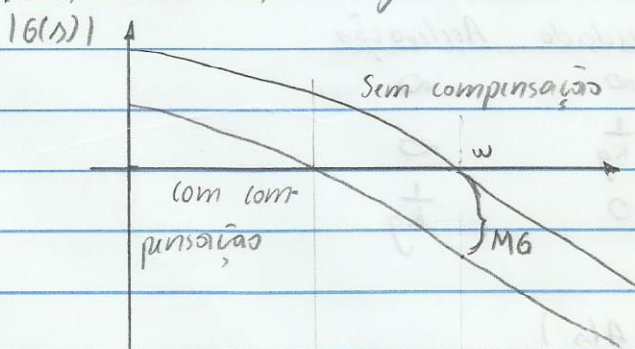 |G(s)|
Sem compensação
w
com com-
pensação
MG